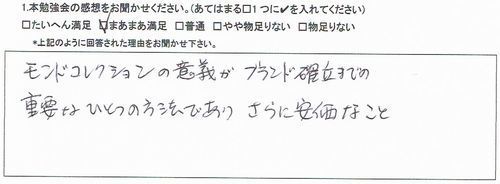 1.本勉強会の感想をお聞かせください。(あてはまる□1つに✔を入れてください)
□たいへん満足 ☑まあまあ満足 □普通 □やや物足りない □物足りない
*上記のように回答された理由をお聞かせ下さい。
モンドコレクションの意義が ブランド確立までの
重要なひとつの方法であり さらに安価なこと